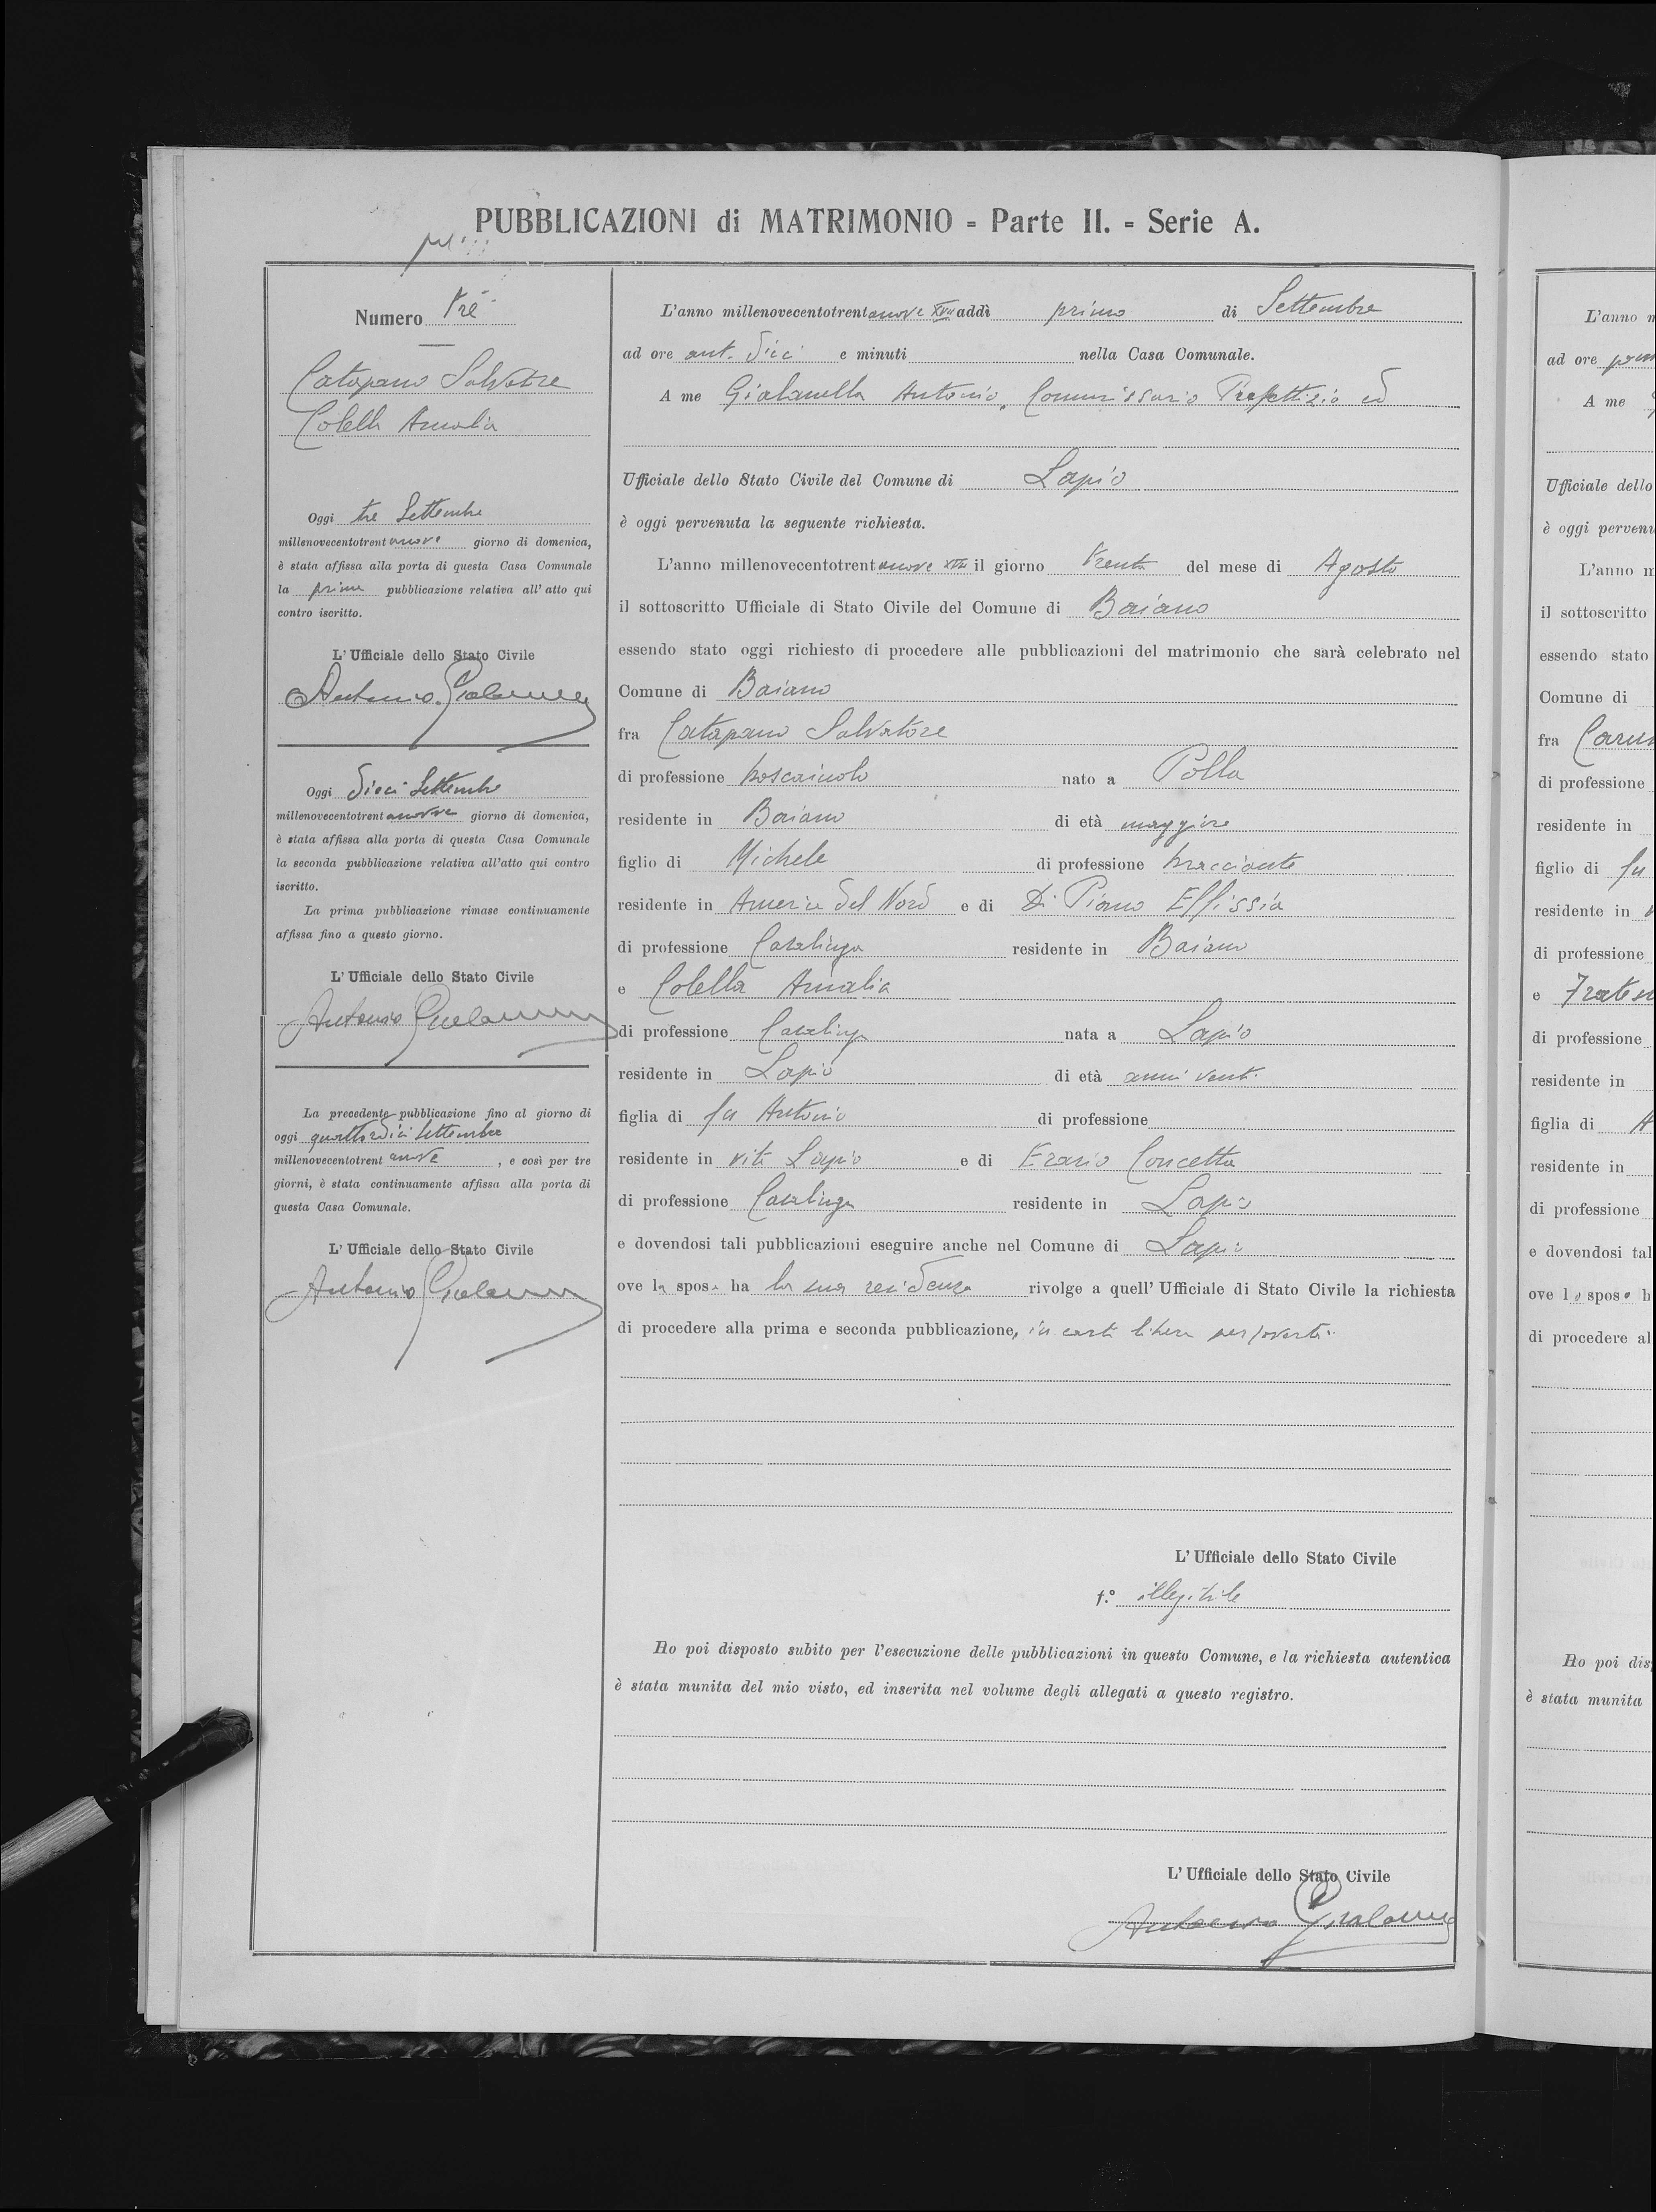 PUBBLICAZIONI di MATRIMONIO = Parte II. = Serie A.
Numero Tre
Catapano Salvatore
Colella Amalia
Oggi tre Settembre
millenovecentotrentanove giorno di domenica,
è stata affissa alla porta di questa Casa Comunale
la prima pubblicazione relativa all' atto qui
contro iscritto.
L' Ufficiale dello Stato Civile
Antonio
Oggi dieci Settembre
millenovecentotrentanove giorno di domenica,
è stata affissa alla porta di questa Casa Comunale
la seconda pubblicazione relativa all'atto qui contro
iscritto.
La prima pubblicazione rimase continuamente
affissa fino a questo giorno.
L' Ufficiale dello Stato Civile
Antonio
La precedente pubblicazione fino al giorno di
oggi quattordici Settembre
millenovecentotrentanove, e così per tre
giorni, è stata continuamente affissa alla porta di
questa Casa Comunale.
L' Ufficiale dello Stato Civile
Antonio
L'anno millenovecentotrentanove XVII addì primo di Settembre
ad ore ant. dieci e minuti nella Casa Comunale.
A me Antonio, Commissario Prefettizio ed
Ufficiale dello Stato Civile del Comune di Lapio
è oggi pervenuta la seguente richiesta.
L'anno millenovecentotrentanove XVII il giorno trenta del mese di Agosto
il sottoscritto Ufficiale di Stato Civile del Comune di Baiano
essendo stato oggi richiesto di procedere alle pubblicazioni del matrimonio che sarà celebrato nel
Comune di Baiano
fra Catapano Salvatore
di professione boscaiuolo nato a Polla
residente in Baiano di età maggiore
figlio di Michele di professione bracciante
residente in America del Nord e di Di Piano
di professione Casalinga residente in Baiano
e Colella Amalia
di professione Casalinga nata a Lapio
residente in Lapio di età anni venti
figlia di fu Antonio di professione
residente in vita Lapio e di Erario Concetta
di professione Casalinga residente in Lapio
e dovendosi tali pubblicazioni eseguire anche nel Comune di Lapio
ove la sposa ha la sua residenza rivolge a quell' Ufficiale di Stato Civile la richiesta
di procedere alla prima e seconda pubblicazione, in carta libera per povertà.
L' Ufficiale dello Stato Civile
f.º illegibile
Ho poi disposto subito per l'esecuzione delle pubblicazioni in questo Comune, e la richiesta autentica
è stata munita del mio visto, ed inserita nel volume degli allegati a questo registro.
L' Ufficiale dello Stato Civile
Antonio
L'anno
ad ore
A me
Ufficiale dello
è oggi
L'anno
il sottoscritto
essendo stato
Comune di
fra
di professione
residente in
figlio di fu
residente in
di professione
e
di professione
residente in
figlia di
residente in
di professione
e dovendosi
ove lo sposo
di procedere
Ho poi
è stata munita